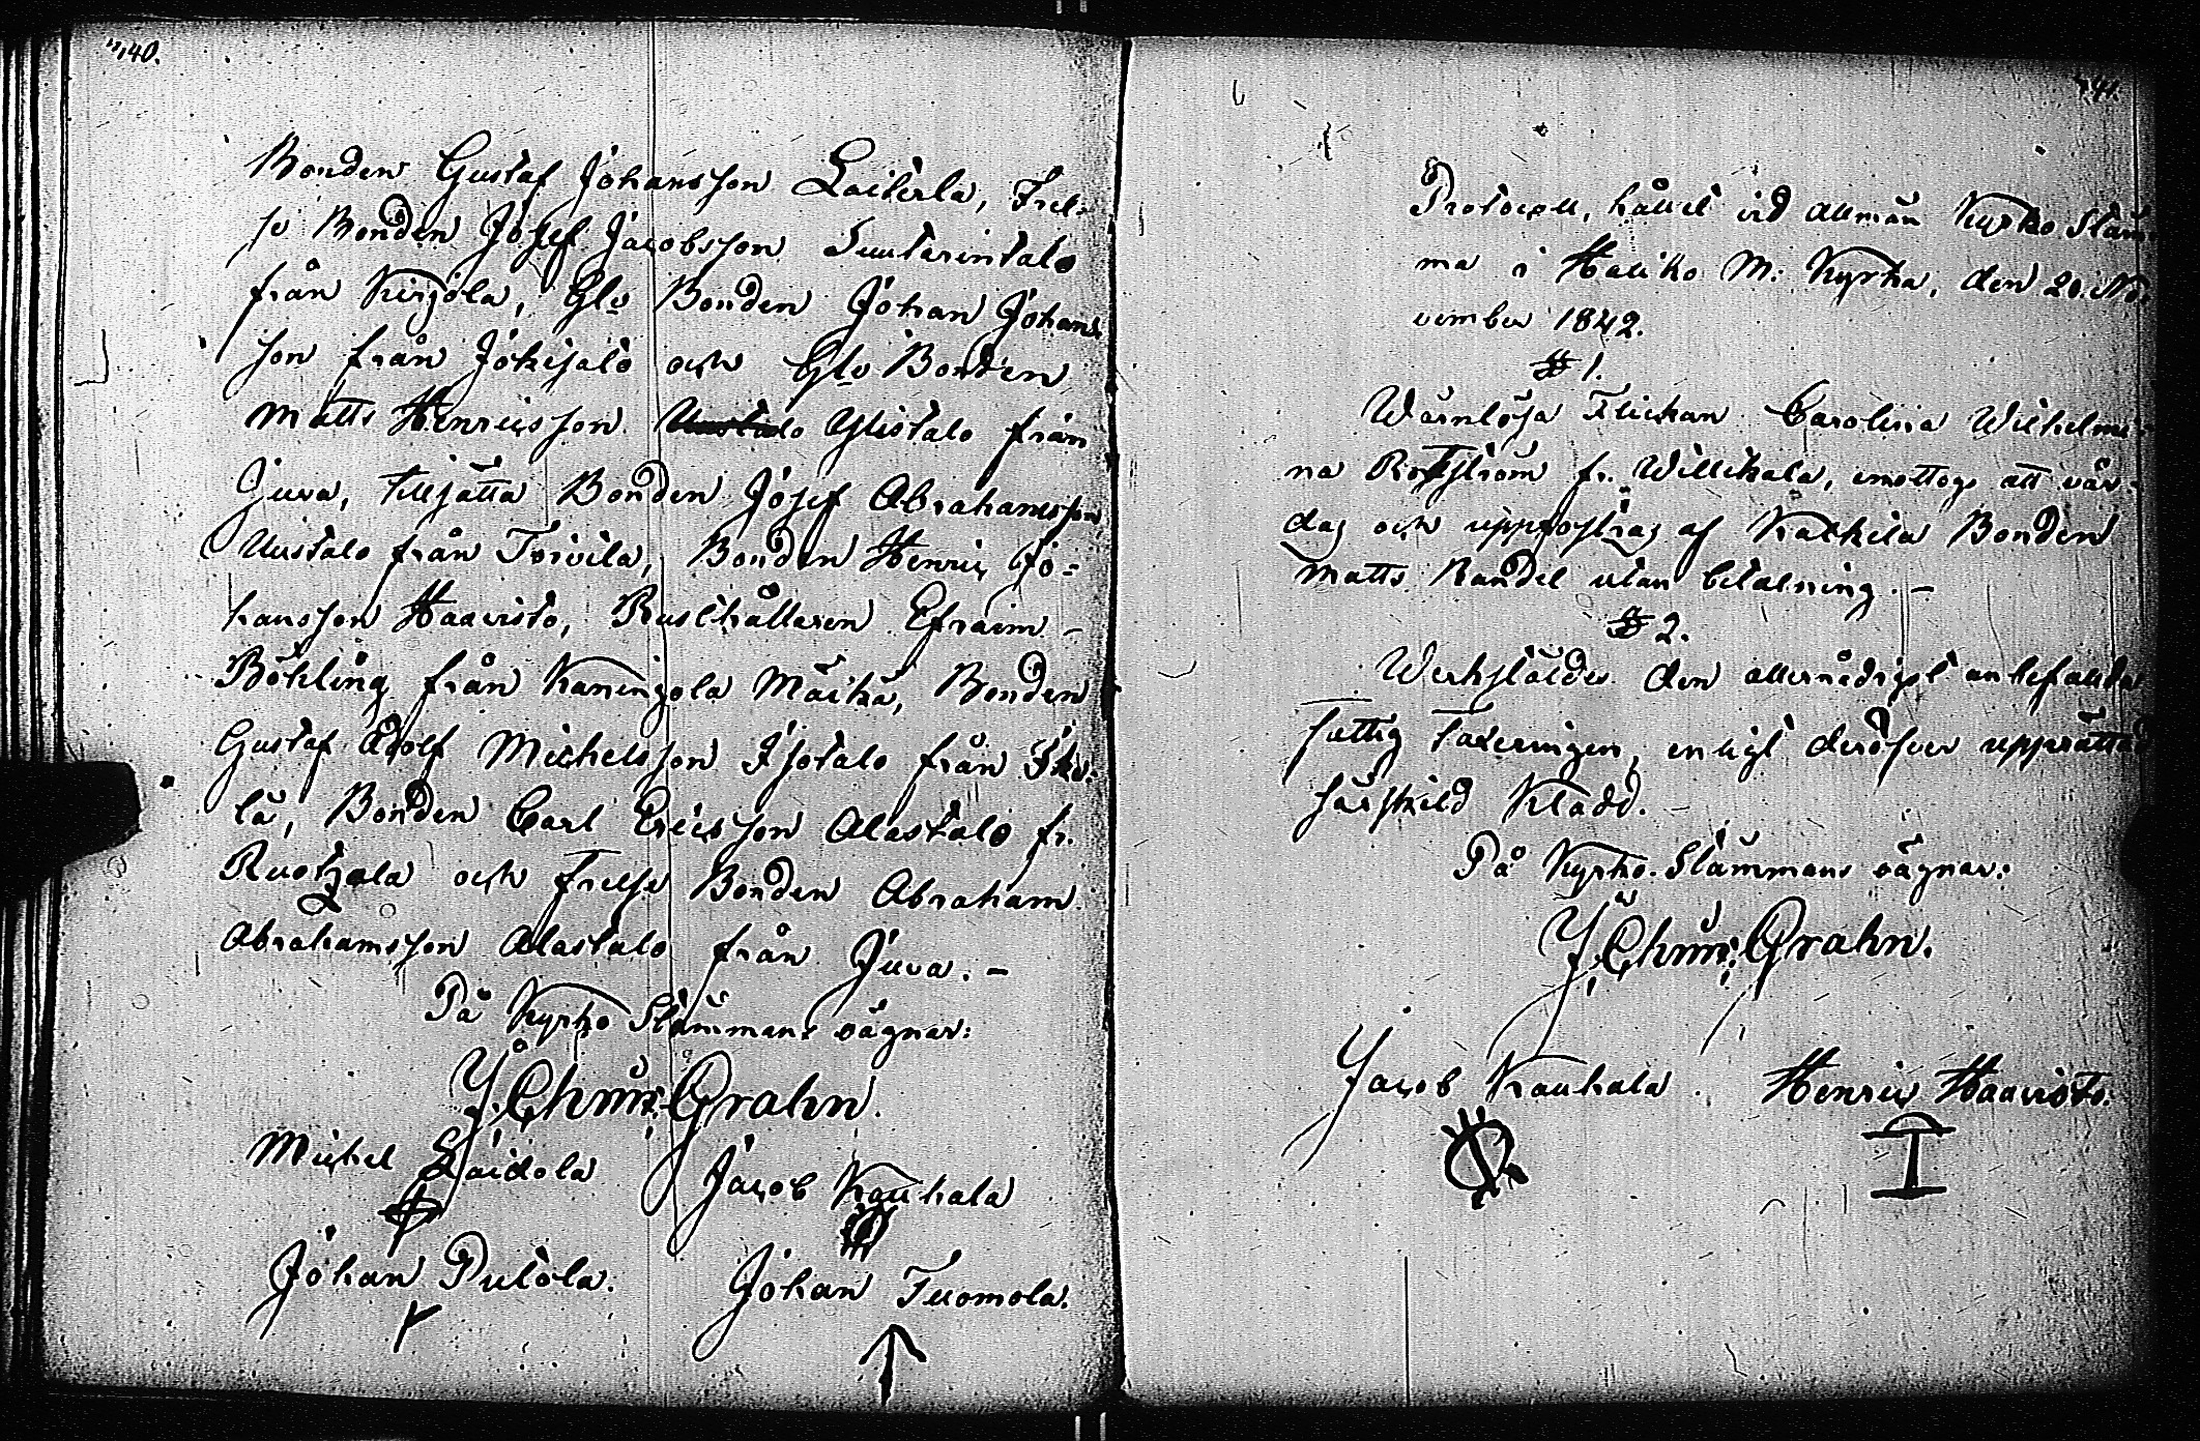 440.
Bonden Gustaf Johansson Laiterla, Frel-
se Bonden Josef Jacobsson Suutarintalo
från Kirjola, Glo Bonden Johan Johans-
son från Jokisalo och Glo Bonden
Matts Henricsson Uustalo Ylistalo från
Juva, tillsatta Bonden Josef Abrahamsson
Uustalo från Toivila, Bonden Henric Jo=
hansson Haavisto, Rusthållaren Efraim -
Böhling från Kaningola Mäikä, Bonden
Gustaf Adolf Michelsson Isotalo från
lä, Bonden Carl Ericsson Alastalo fr.
Ruotzala och Frelse Bonden Abraham
Abrahamsson Alastalo från Juva. -
På Kyrko Stämmans vägnar:
J. Chrin; Grahn.
Michel Laidola Jacob Kaukala
Johan Pulola. Johan Tuomola.
441.
Protocoll, hållit vid allmän Kyrko Stäm-
ma i Haliko M: Kyrka, den 20. No-
vember 1842.
§ 1.
Wärnlösa Flickan Carolina Wilhelmi-
na Rotström fr. Willikala, emottogs att vår-
das och uppfostras af Katkila Bonden
Matts Randel utan betalning. -
§ 2.
Werkställdes den allernådigst anbefallda
Fattig Taxeringen, enligt deröfver upprättad
särskild Kladd.
På Kyrko-Stämmans vägnar:
J. Chrin; Grahn.
Jacob Kaukala. Henric Haavisto.